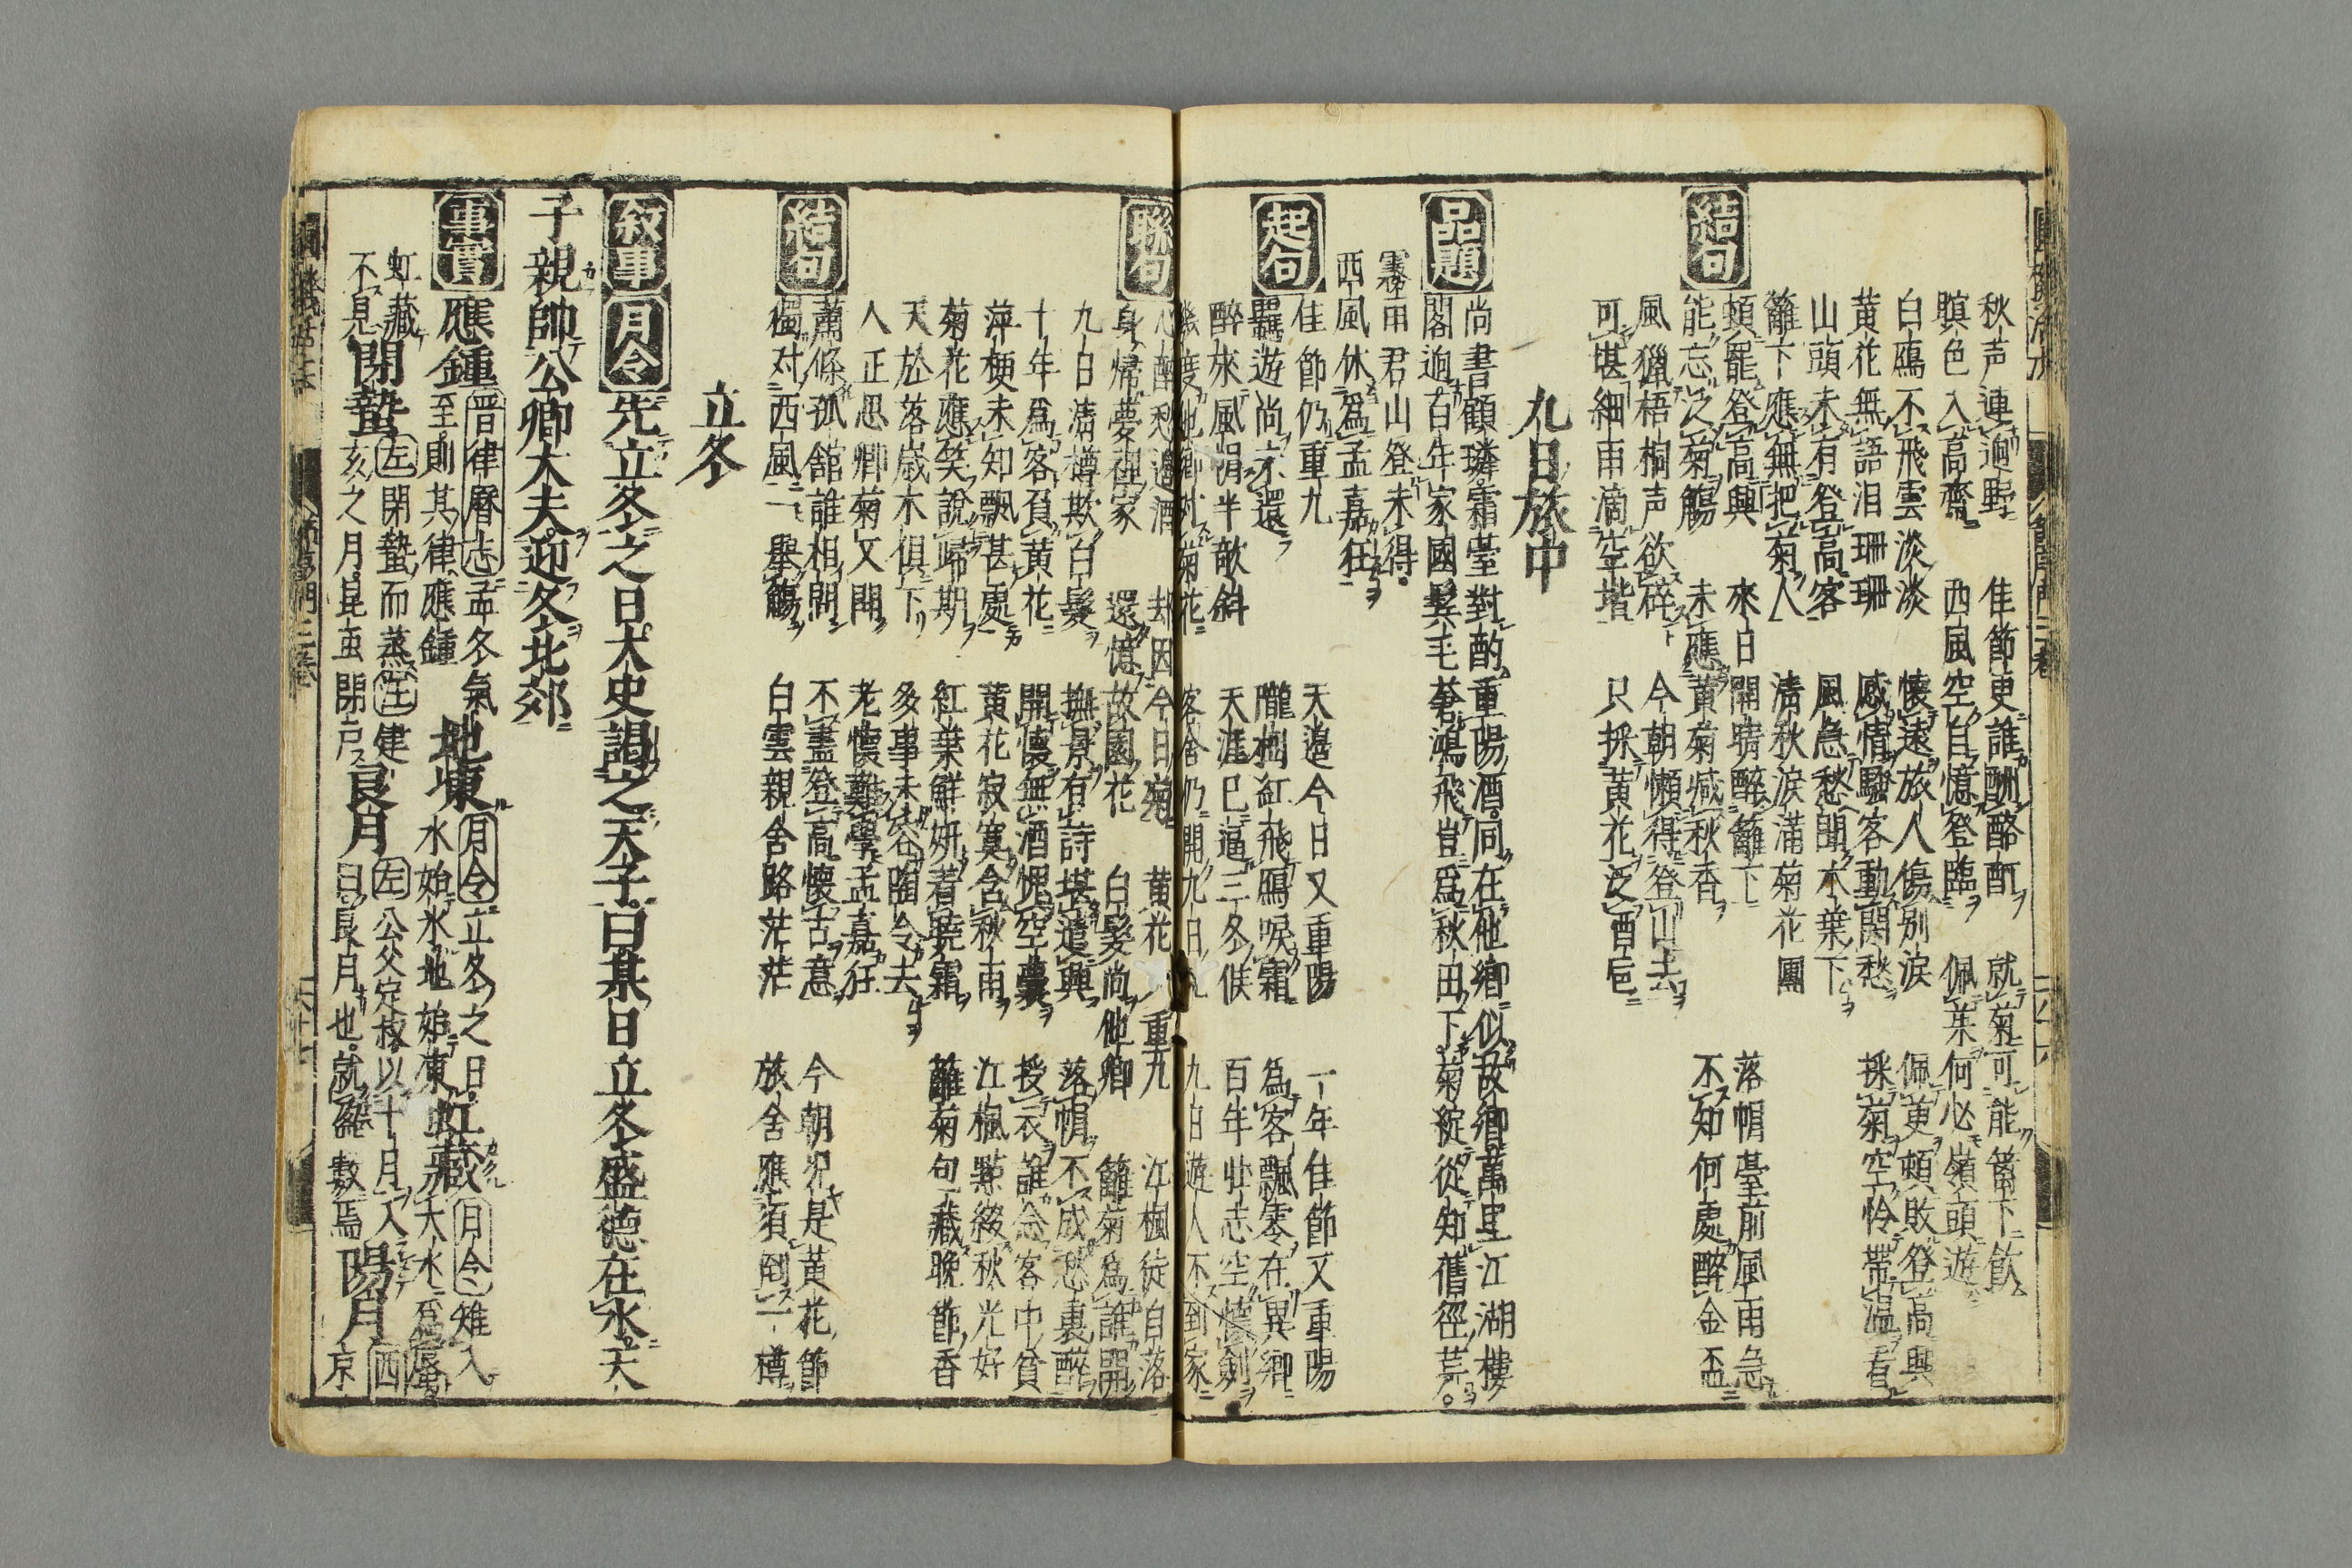 秋声連逈野 佳節更誰酬酩酊 就菊可能籬下飲
暝色入高齋 西風空自憶登臨 佩茱何必嶺頭遊
白鴈不飛雲淡淡 懐遠旅人傷別淚 佩萸頼敗登高興
黄花無語泪珊珊 感情騷客動閑愁 採菊空怜帶温看
山頭未有登高客 風急愁聞木葉下
籬下應無把菊人 清秋淚滿菊花團
結句
頼罷登高興 來日開晴醉籬下 落帽臺前風雨急
能忘之菊觴 未應黄菊减秋香 不知何處醉金盃
風獵梧桐声欲碎 今朝懶得登山去
可堪細雨滴空堦 只採黄花泛酒巵
九日旅中
品題
尚書顧瑧霜臺對酌重陽酒同在他鄉似故鄉萬里江湖樓
閣逈百年家國鬂毛蒼鴻飛豈爲秋田下菊綻從知舊徑荒
雺雨君山登未得
西風休爲孟嘉狂
起句
佳節仍重九 天邉今日又重陽 一年佳節又重陽
羈遊尚未還 隴樹紅飛鴈唳霜 爲客飄零在異鄉
醉來風帽半敧斜 天涯已逼三冬候 百年壯志空憐劍
幾度他鄉对菊花 客舍仍開九日 九日遊人不到家
聯句
心醉愁邉酒 却因今日菊 黄花 重九 江楓徒自落
身歸夢裡家 還憶故園花 白髮尚他鄉 籬菊爲誰開
九日清樽欺白髮 撫景有詩堪遣興 落帽不成愁裏醉
十年爲客負黄花 開懐無酒愧空囊 授衣誰念客中貧
萍梗未知飄甚處 黄花寂寞含秋雨 江楓點綴秋光好
菊花應笑說歸期 紅葉鮮妍着曉霜 籬菊句藏晚節香
天於落嵗木俱下 多事未容陶令去
人正思鄉菊又開 老懐難學孟嘉狂
結句
蕭條孤舘誰相問 不盡登高懐古意 今朝況是黄花節
獨对西風一舉觴 白雲親舍路茫茫 旅舍應須倒一樽
立冬
叙事 月令 先立冬之日大史謁之天子曰某日立冬盛德在水天
子親帥公卿大夫迎冬北郊
事實 應鍾 晋律曆志孟冬氣 至則其律應鍾 地凍 月令立冬之日 水始氷地始凍 虹藏 月令雉入 大水爲蜃
虹藏 不見 閉蟄 左閉蟄而蒸注建 亥之月昆虫閉戸 良月 左公父定叔以十月入 曰良月也就盈數焉 陽月 西 京